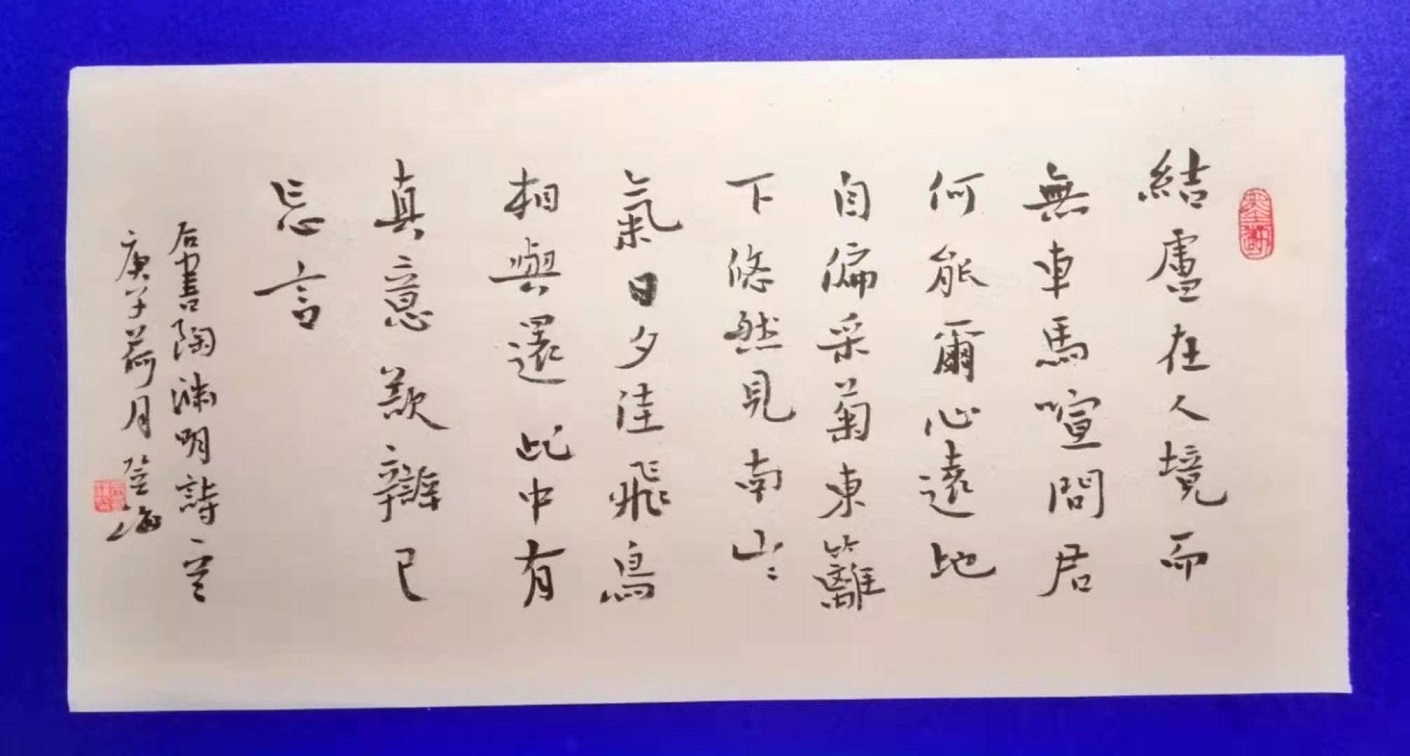 結廬在人境而
無車馬喧問君
何能爾心遠地
自偏采菊東籬
下悠然見南山々
氣日夕洼飛鳥
相與還此中有
真意欲辯已
忘言
右書陶淵明詩意
庚子荷月登海